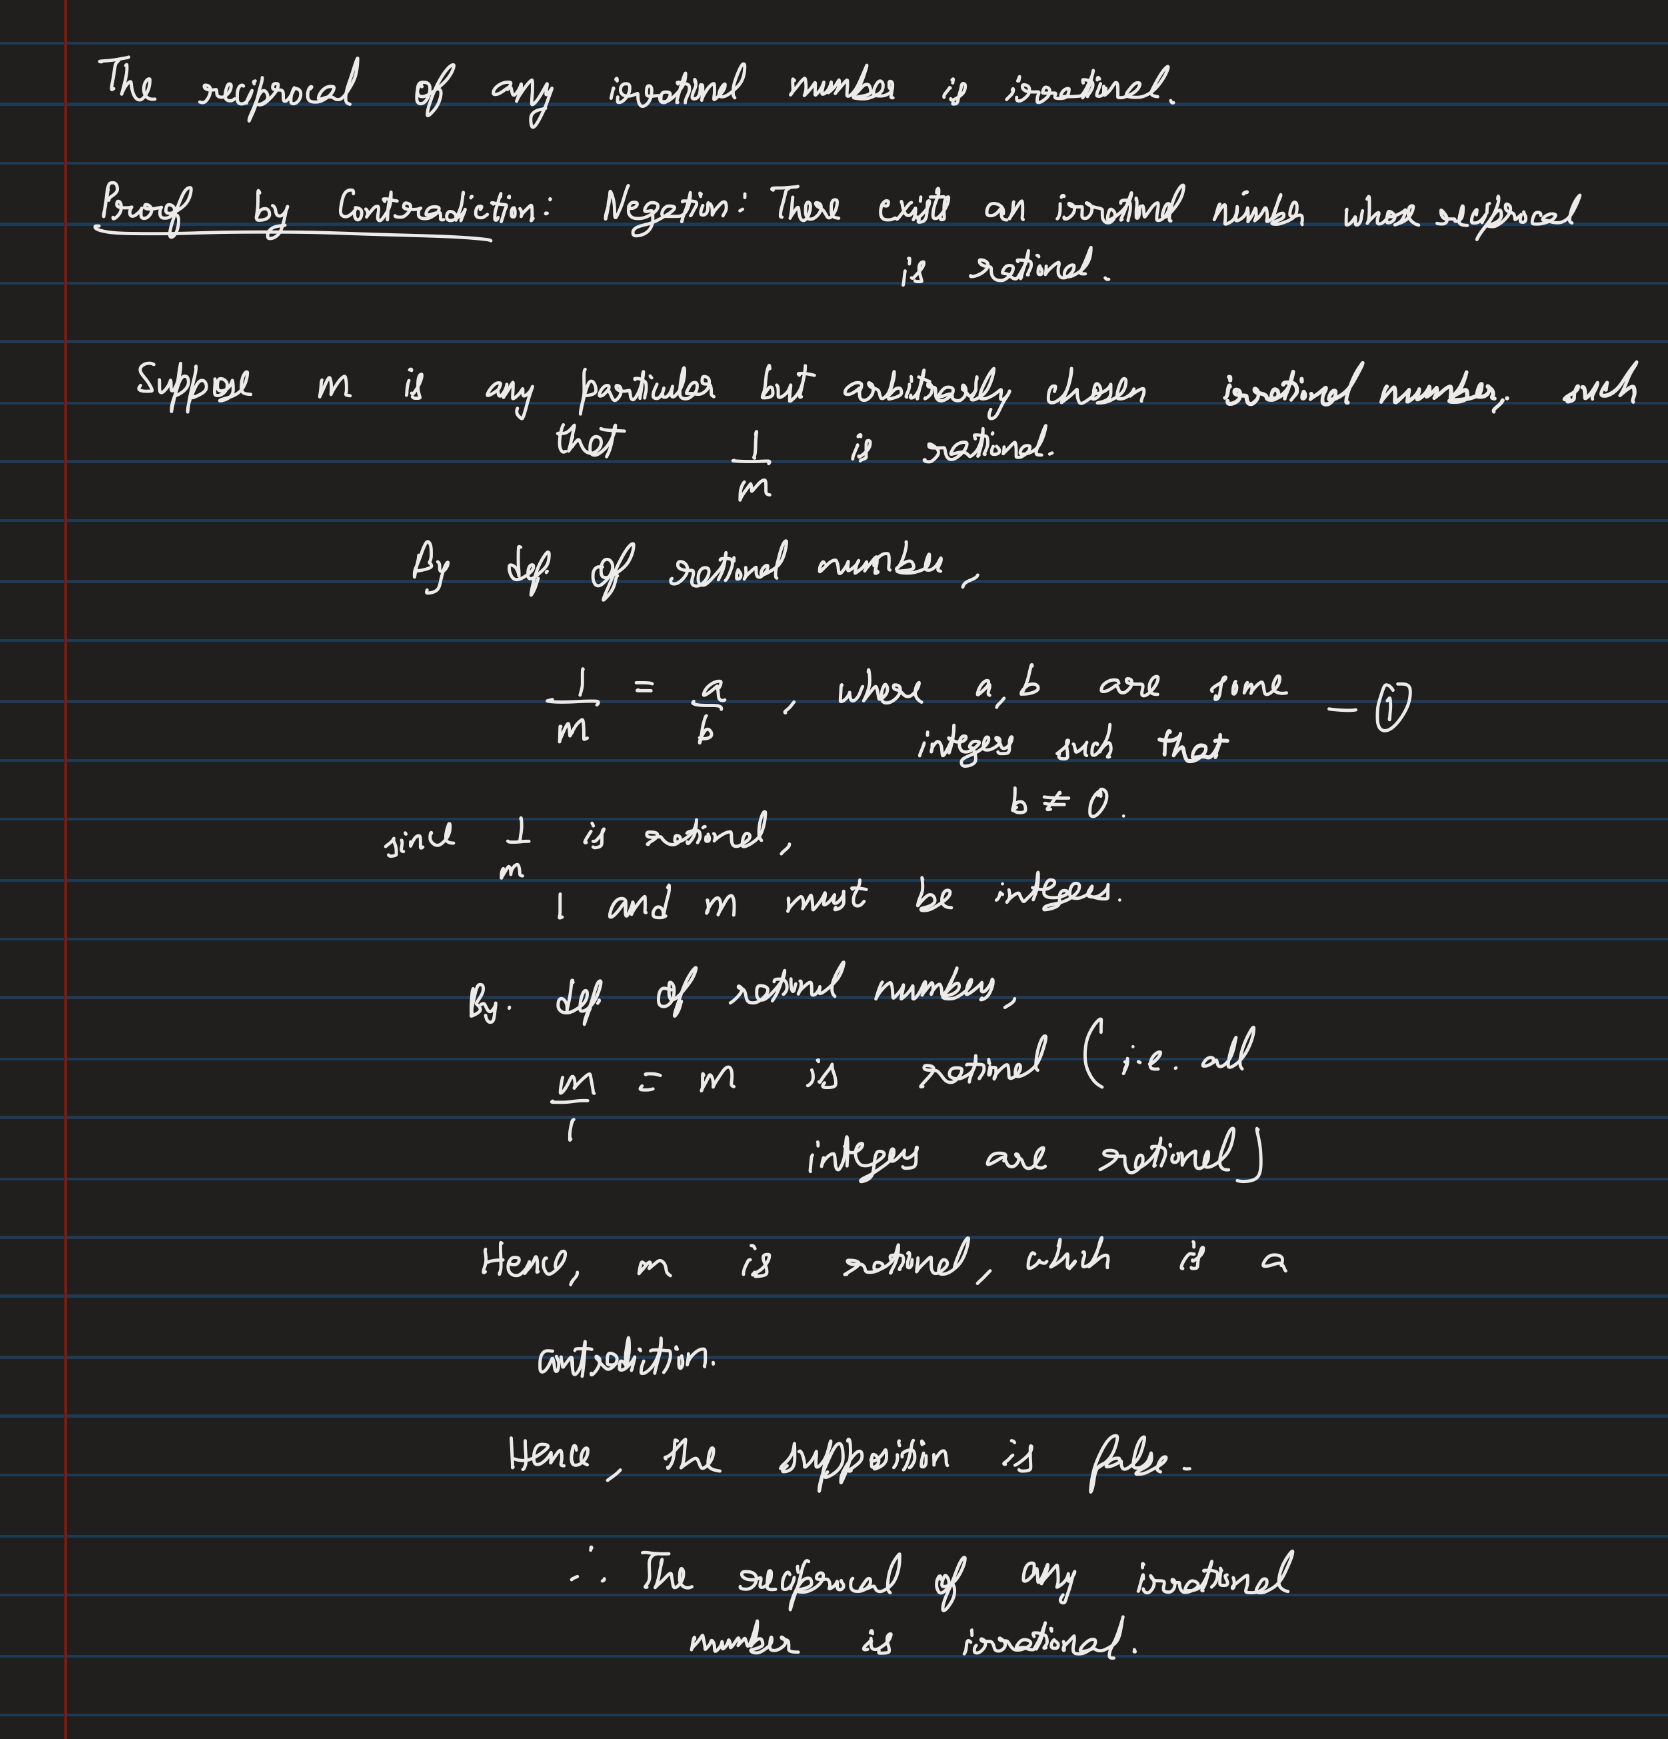 The reciprocal of any irrational number is irrational.
Proof by Contradiction: Negation: There exists an irrational nimber whose reciprocal
is rational.
Suppose m is any particular but arbitrarily chosen irrational number, such
that 1/m is rational.
By def. of rational number,
1/m = a/b , where a, b are some — ①
integers such that
b ≠ 0.
since 1/m is rational,
1 and m must be integers.
By. def. of rational numbers,
m/1 = m is rational (i.e. all
integers are rational)
Hence, m is rational, which is a
contradiction.
Hence, the supposition is false.
∴ The reciprocal of any irrational
number is irrational.